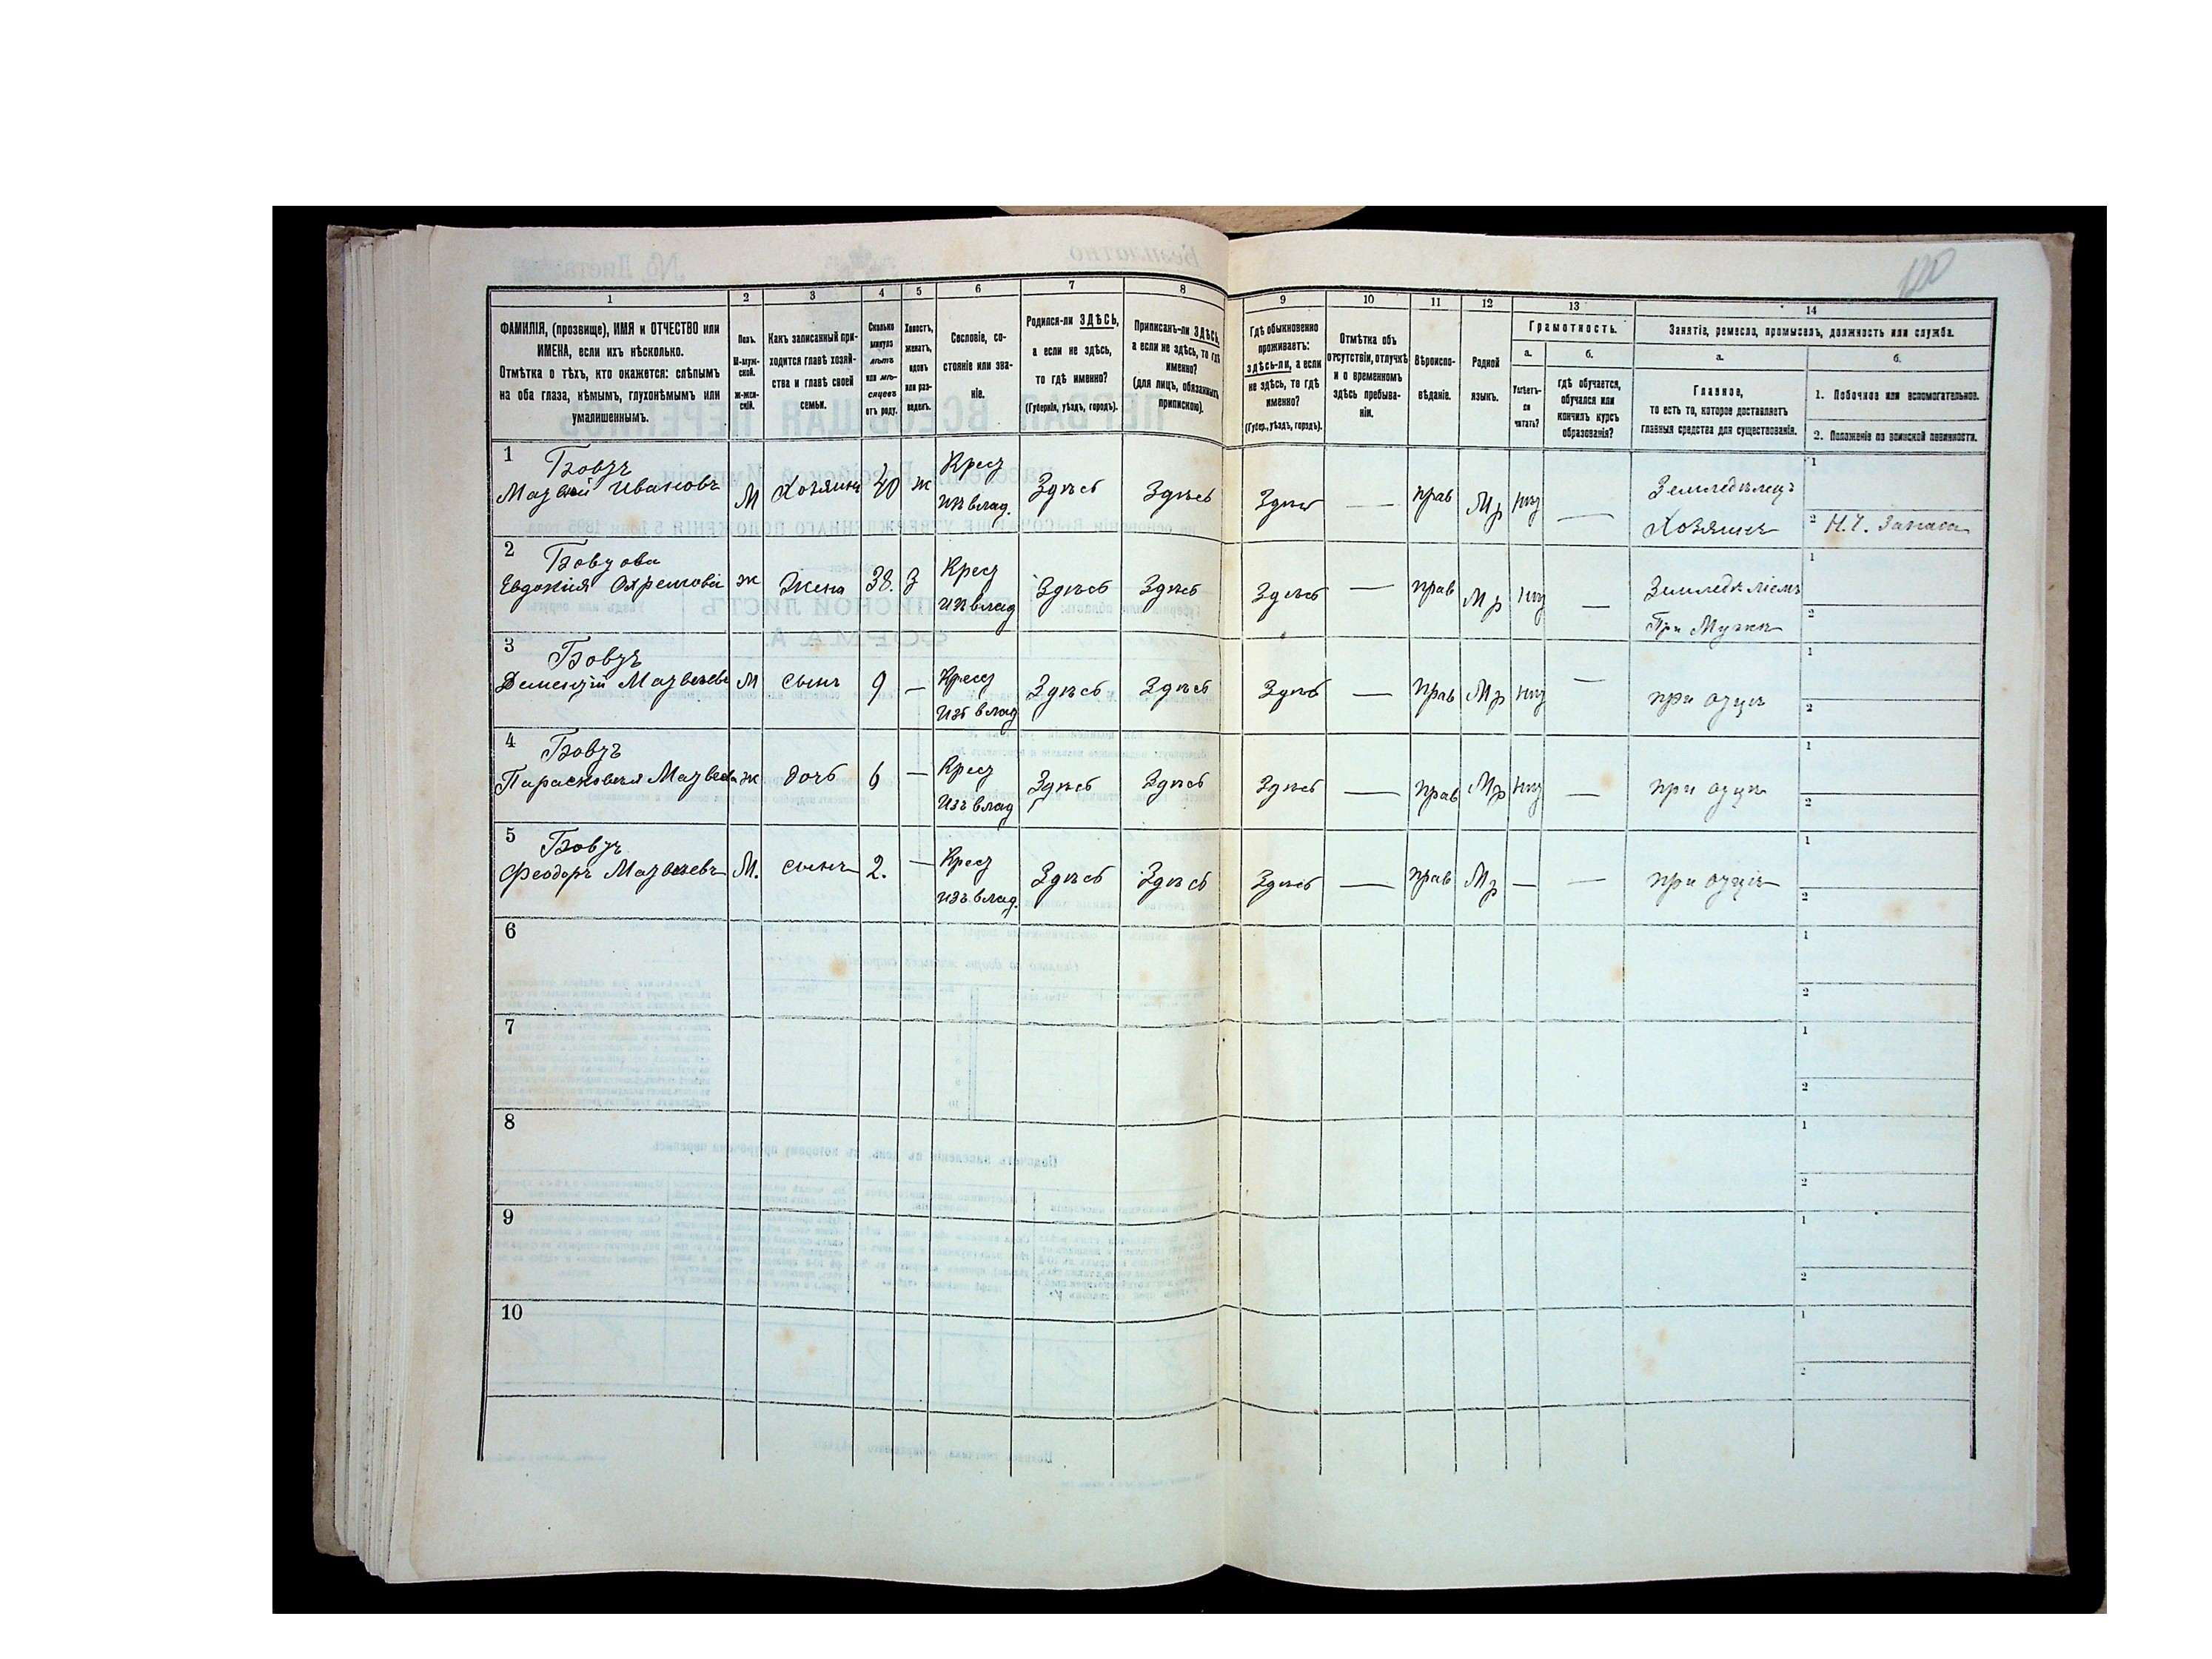 120
1
2
3
4
5
6
7
8
9
10
11
12
13
14
ФАМИЛІЯ, (прозвище), ИМЯ и ОТЧЕСТВО или
ИМЕНА, если ихъ нѣсколько.
Отмѣтка о тѣхъ, кто окажется: слѣпымъ
на оба глаза, нѣмымъ, глухонѣмымъ или
умалишеннымъ.
Полъ.
М-муж-
ской.
Ж-жен-
скій.
Какъ записанный при-
ходится главѣ хозяй-
ства и главѣ своей
семьи.
Сколько
минуло
лѣтъ
или мѣ-
сяцевъ
отъ роду.
Холостъ,
женатъ,
вдовъ
или раз-
веденъ.
Сословіе, со-
стояніе или зва-
ніе.
Родился-ли ЗДѢСЬ,
а если не здѣсь,
то гдѣ именно?
(Губернія, уѣздъ, городъ).
Приписанъ-ли ЗДѢСЬ,
а если не здѣсь, то гдѣ
именно?
(для лицъ, обязанныхъ
припискою).
Гдѣ обыкновенно
проживаетъ:
здѣсь-ли, а если
не здѣсь, то гдѣ
именно?
(Губер., уѣздъ, городъ).
Отмѣтка объ
отсутствіи, отлучкѣ
и о временномъ
здѣсь пребыва-
ніи.
Вѣроиспо-
вѣданіе.
Родной
языкъ.
Грамотность.
а.
Умѣетъ-
ли
читать?
б.
гдѣ обучается,
обучался или
кончилъ курсъ
образованія?
Занятіе, ремесло, промыселъ, должность или служба.
а.
Главное,
то есть то, которое доставляетъ
главныя средства для существованія.
б.
1. Побочное или вспомогательное.
2. Положеніе по воинской повинности.
1 Бовтъ
Матвій Ивановъ М Хозяинъ 40 ж Крест изъ влад. Здѣсь Здѣсь Здѣсь — прав Мр нит — Земледѣлецъ Хозяинъ 1
2 Н.Ч. Запаса
2 Бовтова
Евдокія Ефремова ж Жена 38. З Крест изъ влад Здѣсь Здѣсь Здѣсь — прав Мр нит — Земледѣліемъ При Мужѣ 1
2
3 Бовтъ
Дементій Матвѣевъ М сынъ 9 — Крест изъ влад Здѣсь Здѣсь Здѣсь — прав Мр нит — при отцѣ 1
2
4 Бовтъ
Парасковія Матвеева ж дочь 6 — Крест изъ влад Здѣсь Здѣсь Здѣсь — прав Мр нит — при отцѣ 1
2
5 Бовтъ
Феодоръ Матвѣевъ М. сынъ 2. — Крест изъ влад. Здѣсь Здѣсь Здѣсь — прав Мр — — при отцѣ 1
2
6 1
2
7 1
2
8 1
2
9 1
2
10 1
2